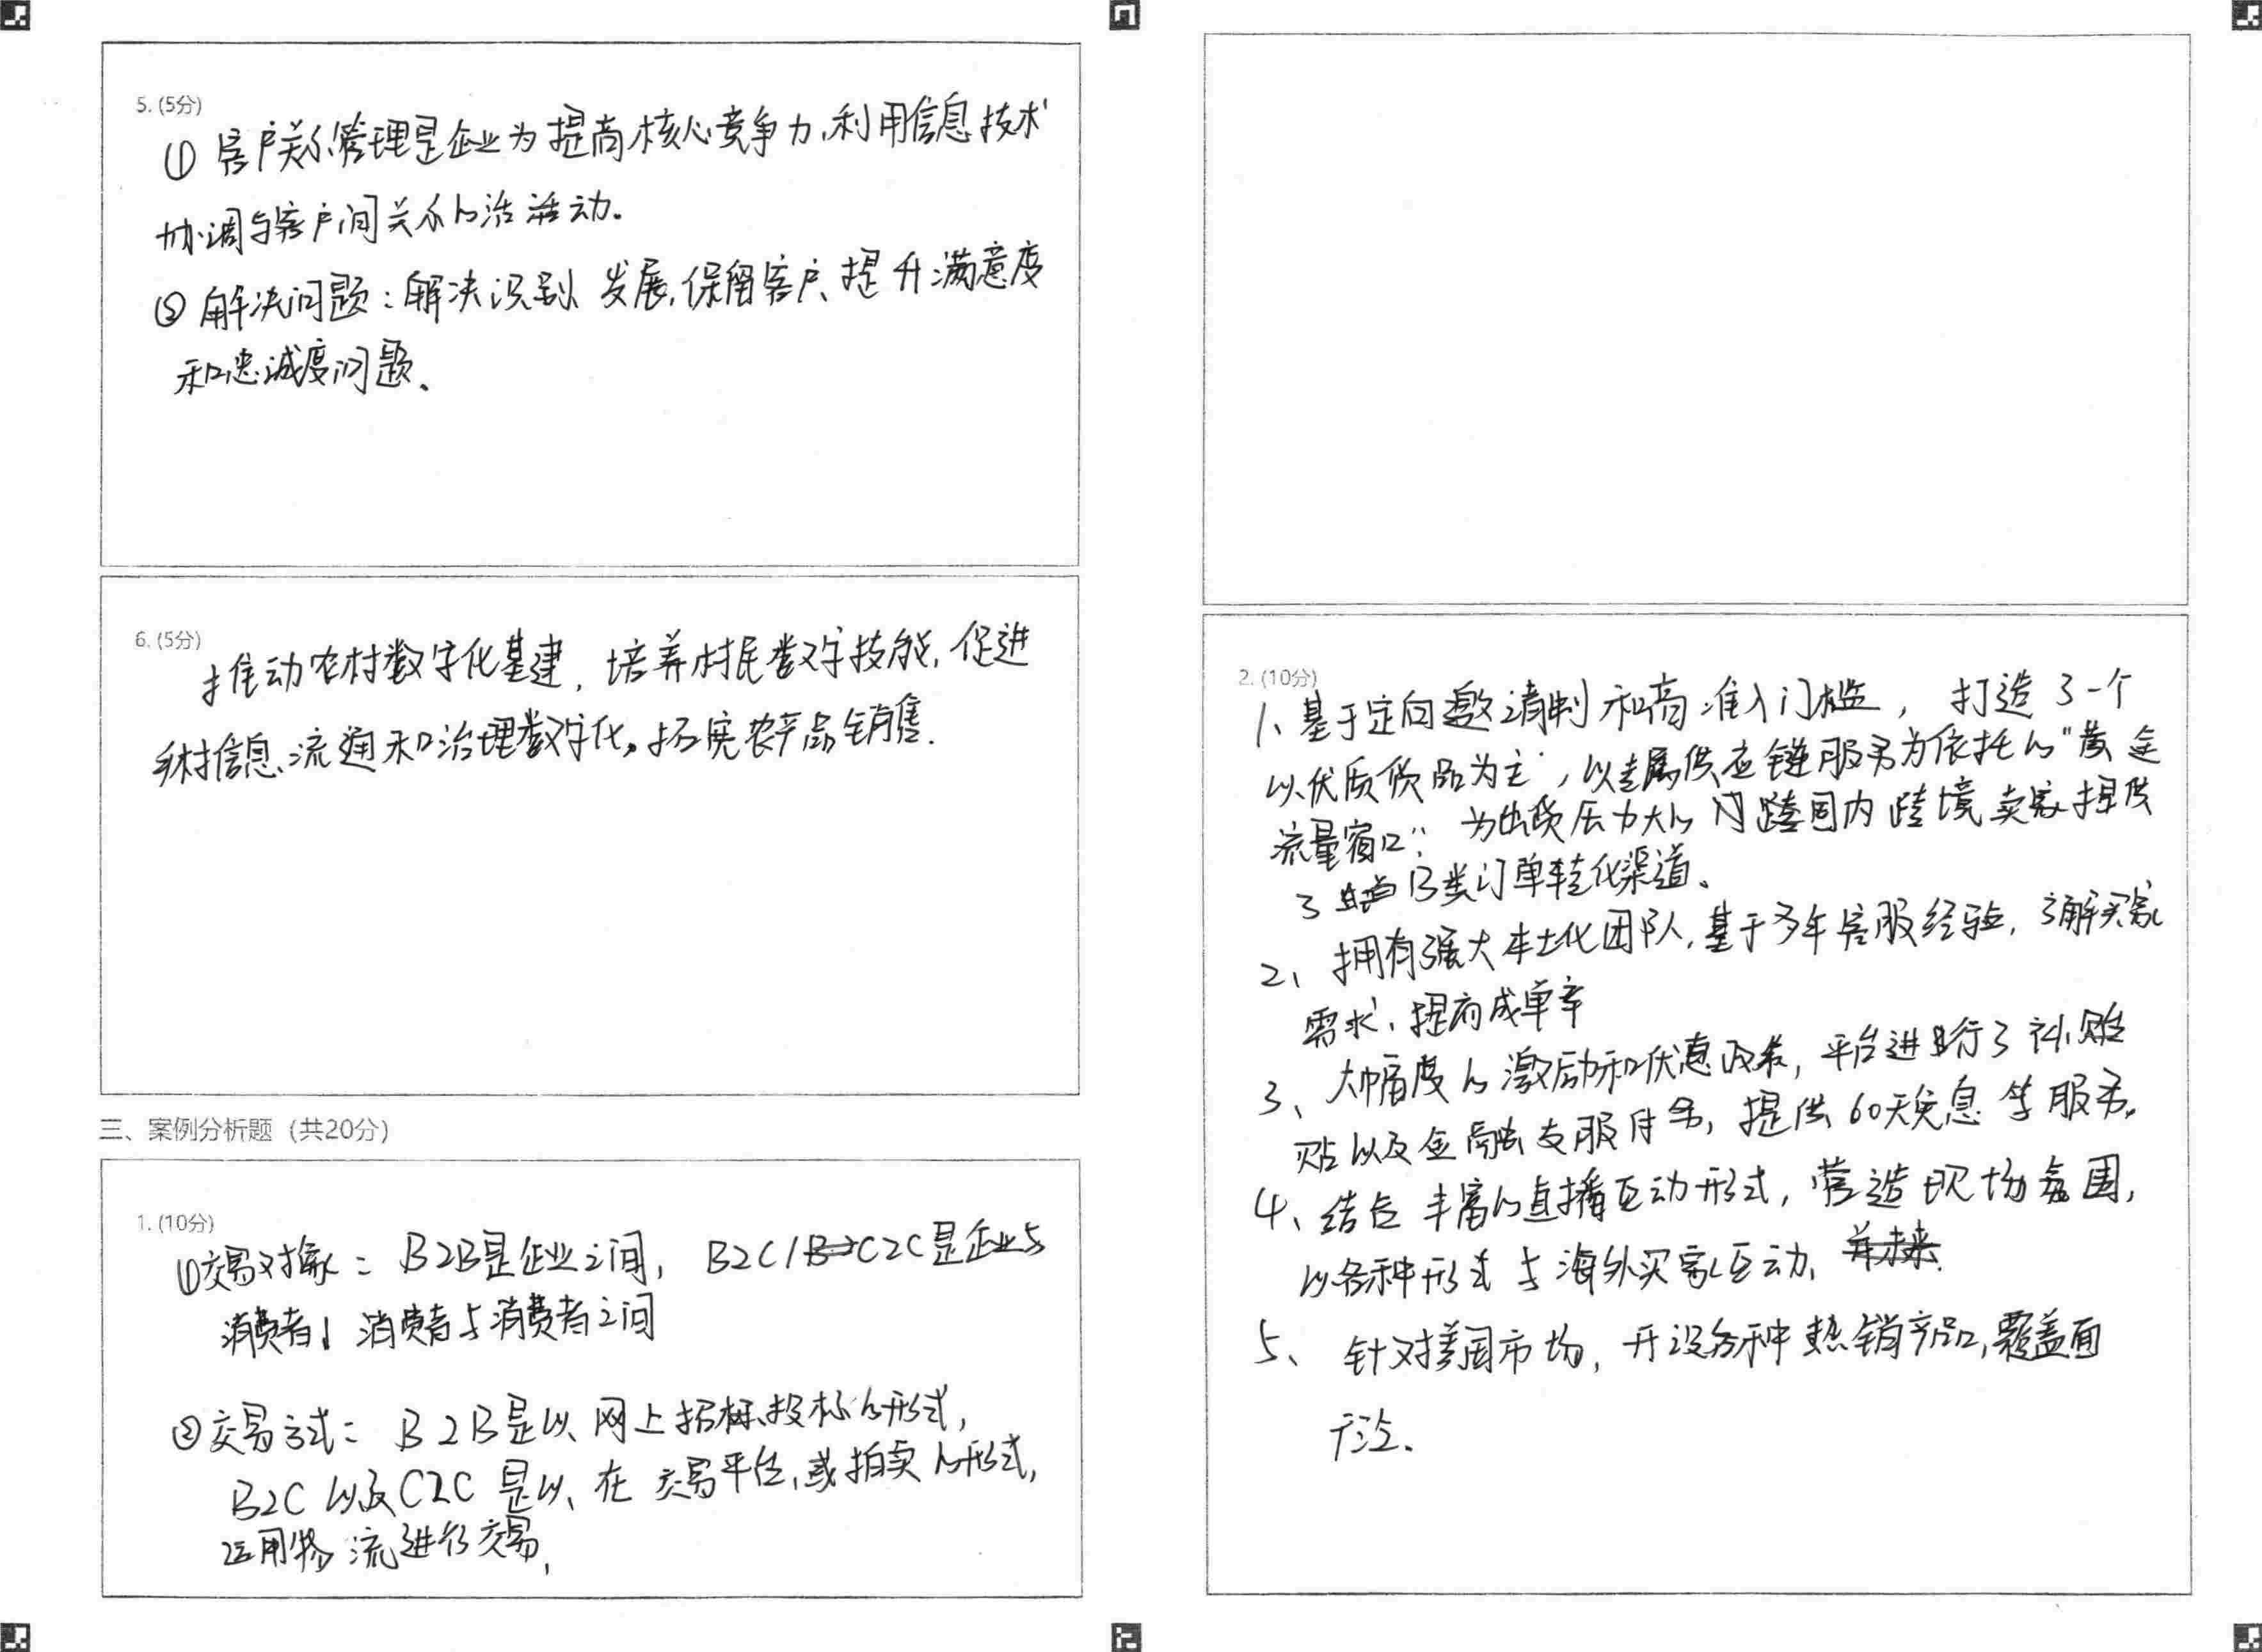 5. (5分)
① 客户关系管理是企业为提高核心竞争力,利用信息技术
协调与客户间关系的活活动。
② 解决问题:解决识别、发展,保留客户、提升满意度
和忠诚度问题、
6. (5分)
推动农村数字化基建,培养村民数字技能,促进
乡村信息流通和治理数字化。拓宽农产品销售.
三、案例分析题(共20分)
1. (10分)
①交易对象: B2B是企业之间, B2C/C2C是企业与
消费者、消费者与消费者之间
②交易方式: B2B是以网上招标、投标的形式,
B2C以及C2C是以、在交易平台,或拍卖的形式,
运用物流进行交易,
2. (10分)
1、基于定向邀请制和高准入门槛,打造了一个
以优质货品为主,以专属供应链服务为依托的"黄金
流量窗口",为出货压力大的国内跨境卖家提供
了B类订单转化渠道、
2、拥有强大本土化团队,基于多年客服经验,了解买家
需求、提高成单率
3、大幅度的激励和优惠政策,平台进行了补贴
贴以及金融支服付务,提供60天免息等服务。
4、结合丰富的直播互动形式,营造现场氛围,
以各种形式与海外买家互动,
5、针对美国市场,开设各种热销产品,覆盖面
广泛、